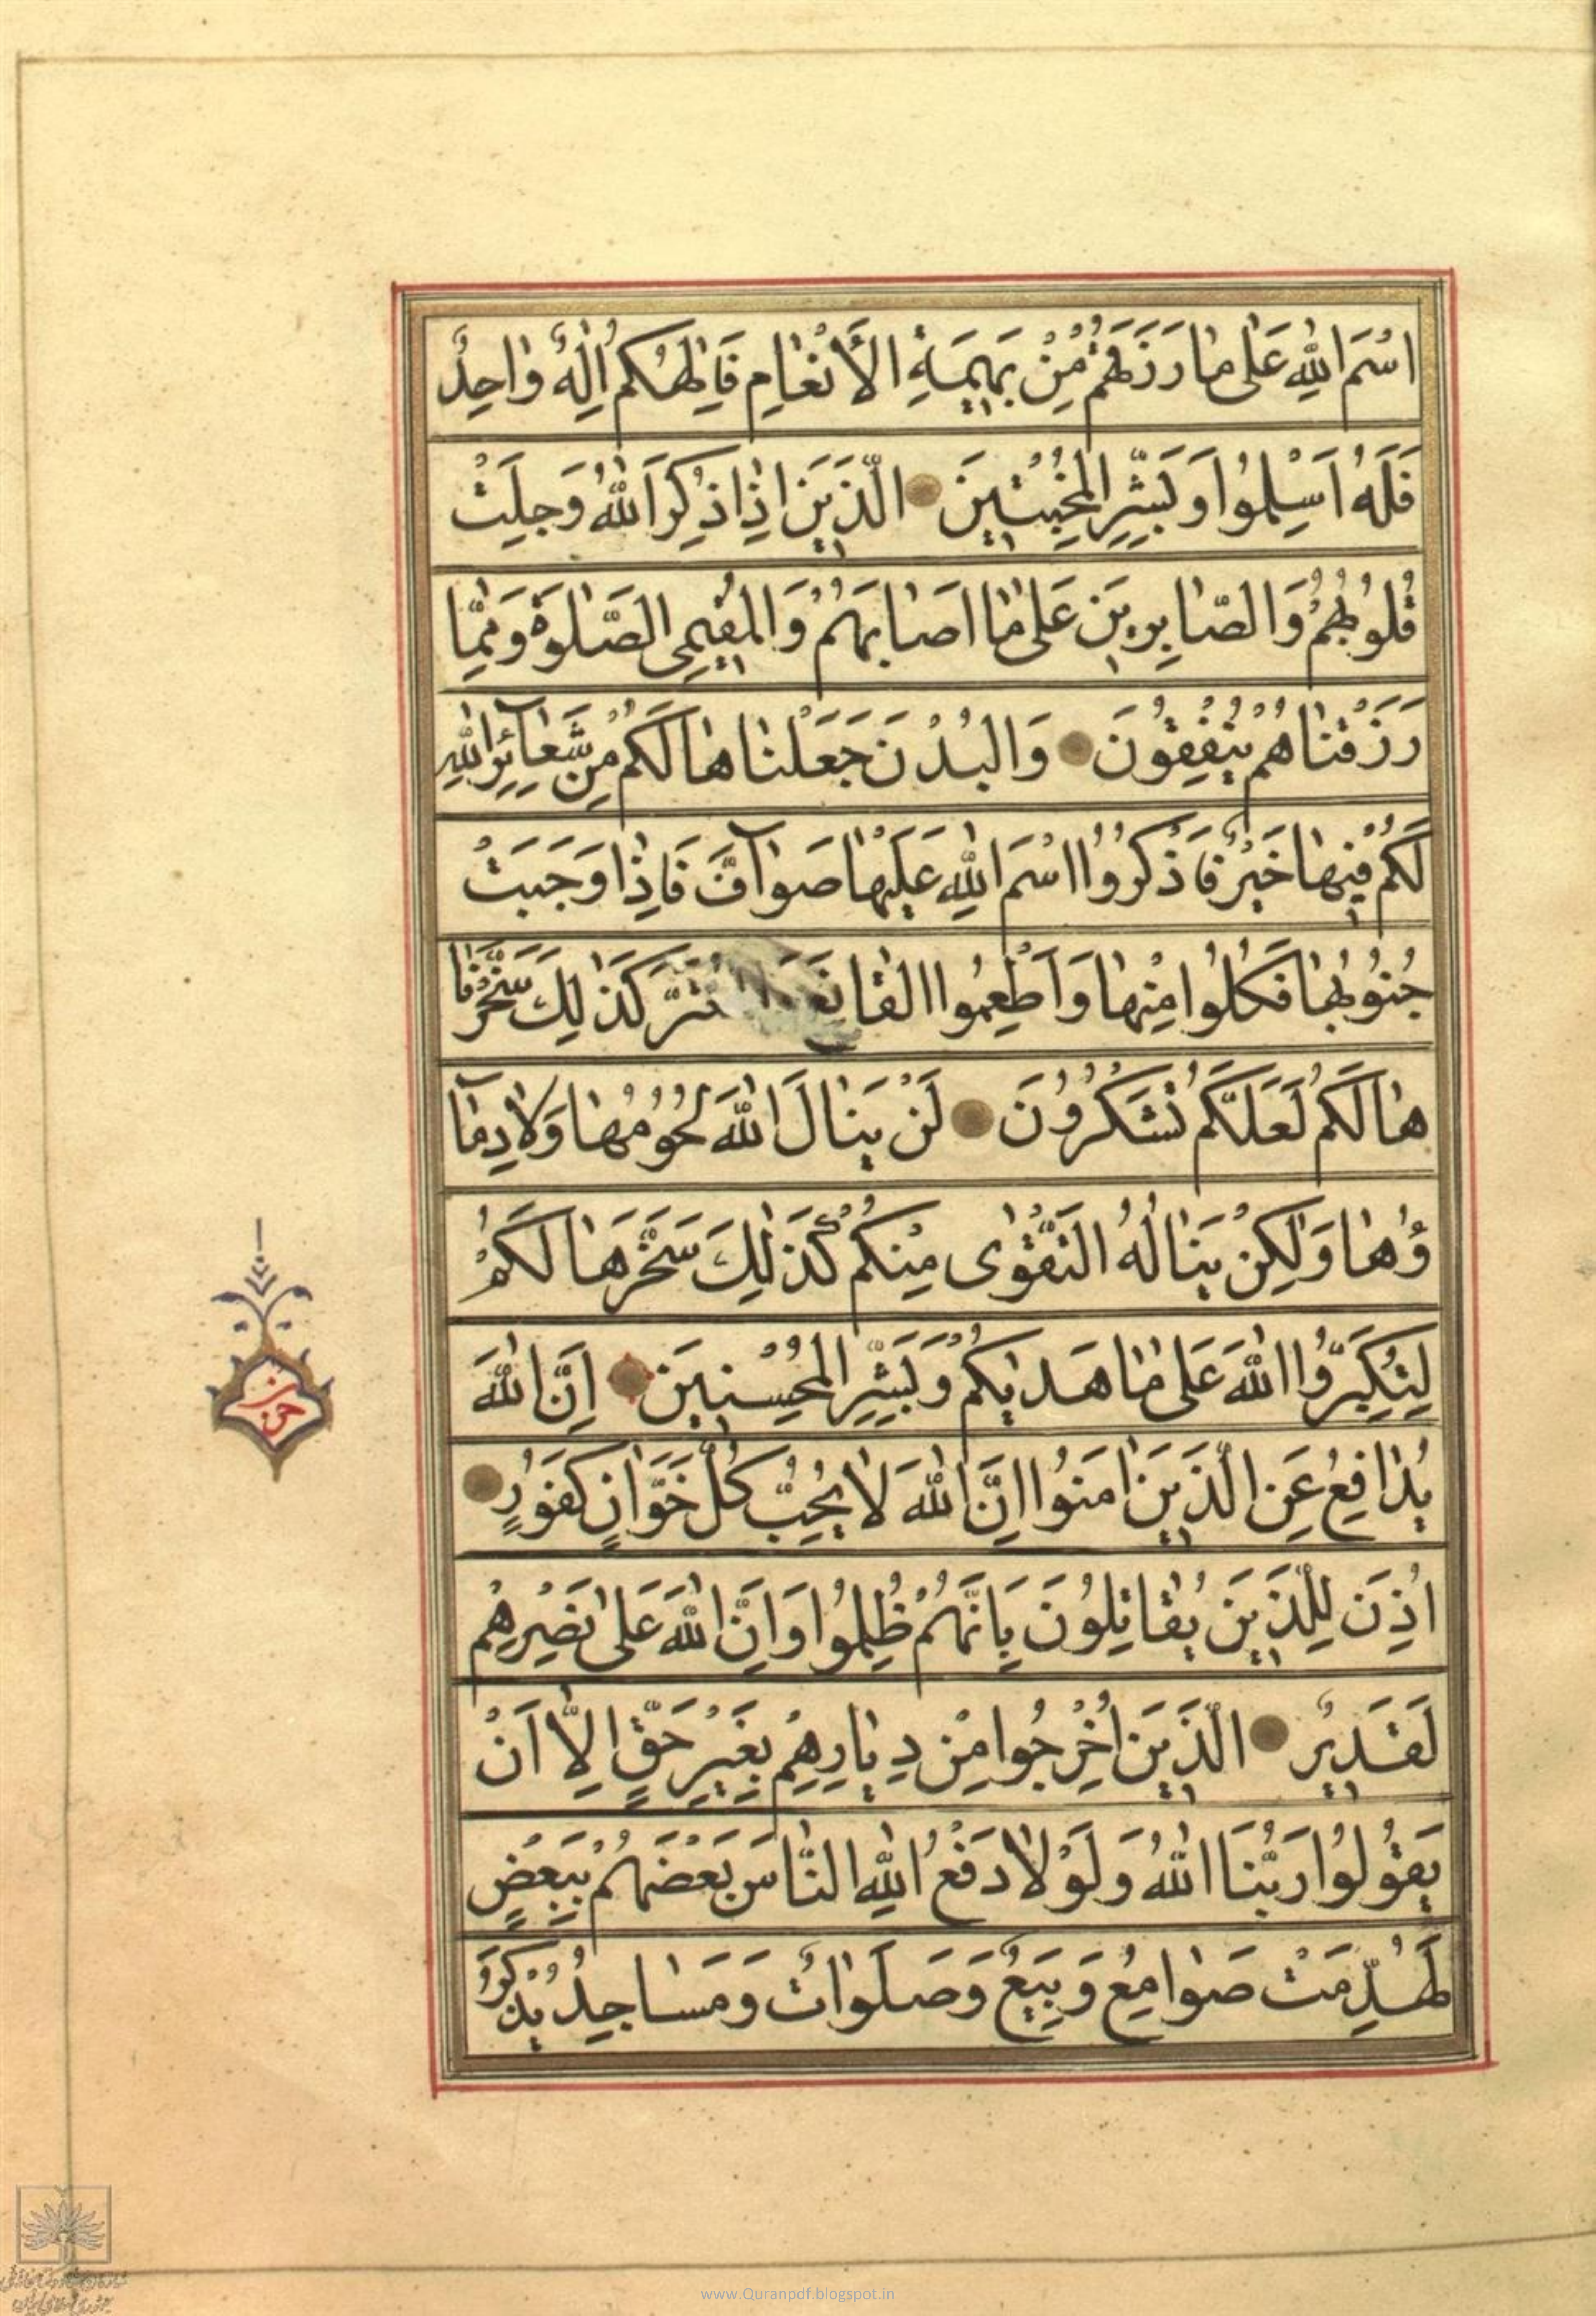 اسْمَ اللّٰهِ عَلىٰ مٰا رَزَقَهُمْ مِنْ بَهِيمَةِ الْأَنْعٰامِ فَإِلٰهُكُمْ إِلٰهٌ وٰاحِدٌ
فَلَهُ أَسْلِمُوا وَبَشِّرِ الْمُخْبِتِينَ الَّذِينَ إِذٰا ذُكِرَ اللّٰهُ وَجِلَتْ
قُلُوبُهُمْ وَالصّٰابِرِينَ عَلىٰ مٰا أَصٰابَهُمْ وَالْمُقِيمِي الصَّلٰوةِ وَمِمّٰا
رَزَقْنٰاهُمْ يُنْفِقُونَ وَالْبُدْنَ جَعَلْنٰاهٰا لَكُمْ مِنْ شَعٰآئِرِ اللّٰهِ
لَكُمْ فِيهٰا خَيْرٌ فَاذْكُرُوا اسْمَ اللّٰهِ عَلَيْهٰا صَوٰآفَّ فَإِذٰا وَجَبَتْ
جُنُوبُهٰا فَكُلُوا مِنْهٰا وَأَطْعِمُوا الْقٰانِعَ كَذٰلِكَ سَخَّرْنٰا
هٰا لَكُمْ لَعَلَّكُمْ تَشْكُرُونَ لَنْ يَنٰالَ اللّٰهَ لُحُومُهٰا وَلٰا دِمٰآ
ؤُهٰا وَلٰكِنْ يَنٰالُهُ التَّقْوٰى مِنْكُمْ كَذٰلِكَ سَخَّرَهٰا لَكُمْ
لِتُكَبِّرُوا اللّٰهَ عَلىٰ مٰا هَدٰيكُمْ وَبَشِّرِ الْمُحْسِنِينَ إِنَّ اللّٰهَ
يُدٰافِعُ عَنِ الَّذِينَ اٰمَنُوا إِنَّ اللّٰهَ لٰا يُحِبُّ كُلَّ خَوّٰانٍ كَفُورٍ
أُذِنَ لِلَّذِينَ يُقٰاتِلُونَ بِأَنَّهُمْ ظُلِمُوا وَإِنَّ اللّٰهَ عَلىٰ نَصْرِهِمْ
لَقَدِيرٌ الَّذِينَ أُخْرِجُوا مِنْ دِيٰارِهِمْ بِغَيْرِ حَقٍّ إِلّٰا أَنْ
يَقُولُوا رَبُّنَا اللّٰهُ وَلَوْلٰا دَفْعُ اللّٰهِ النّٰاسَ بَعْضَهُمْ بِبَعْضٍ
لَهُدِّمَتْ صَوٰامِعُ وَبِيَعٌ وَصَلَوٰاتٌ وَمَسٰاجِدُ يُذْكَرُ
حزب
www.Quranpdf.blogspot.in